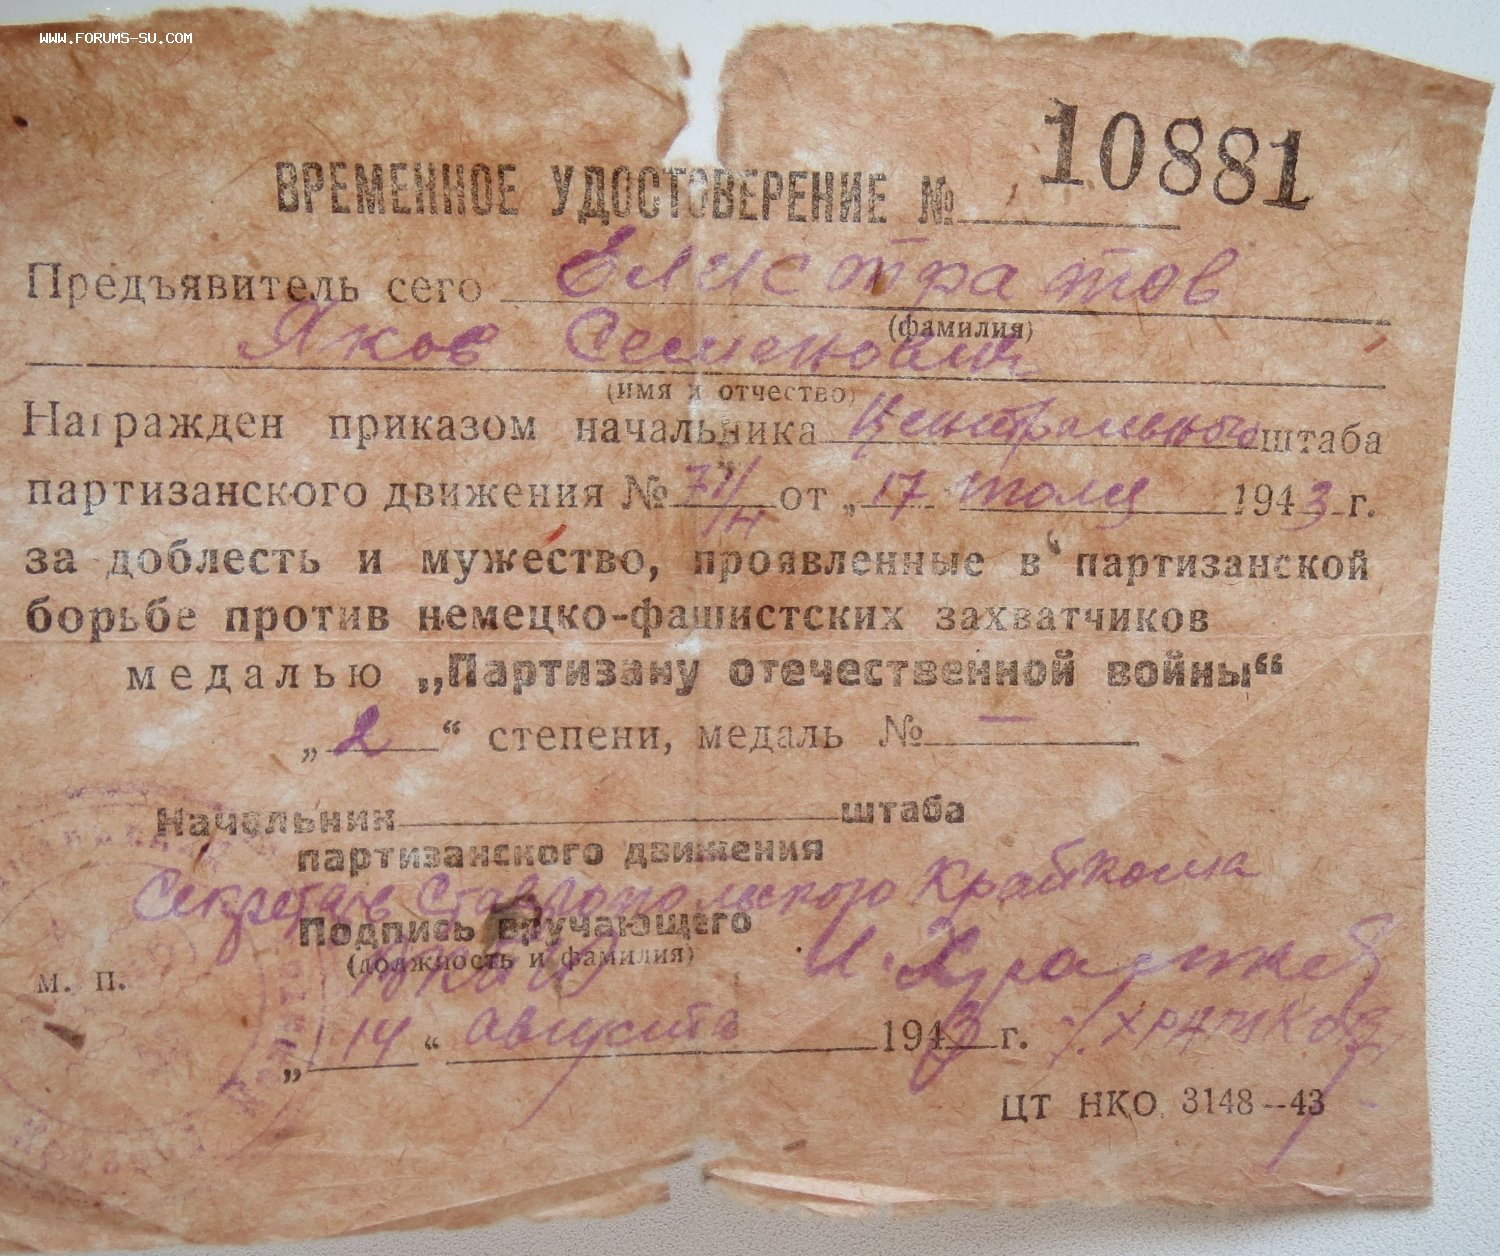 WWW.FORUMS-SU.COM
10881
ВРЕМЕННОЕ УДОСТОВЕРЕНИЕ №
Предъявитель сего Елистратов
(фамилия)
Яков Семенович
(имя и отчество)
Награжден приказом начальника Центрального штаба
партизанского движения № 71/н от „17 июля 1943 г.
за доблесть и мужество, проявленные в партизанской
борьбе против немецко-фашистских захватчиков
медалью „Партизану отечественной войны“
„2“ степени, медаль № —
Начальник штаба
партизанского движения
Секретарь Ставропольского Крайкома
Подпись вручающего
(должность и фамилия)
М. П.
„14“ августа 1943 г.
ЦТ НКО 3148-43